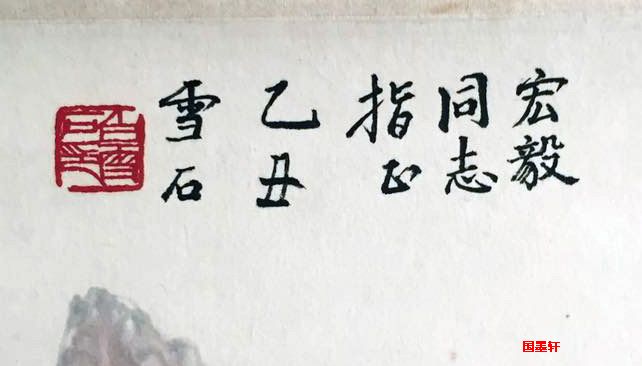 宏毅
同志
指正
乙丑
雪石
国墨轩